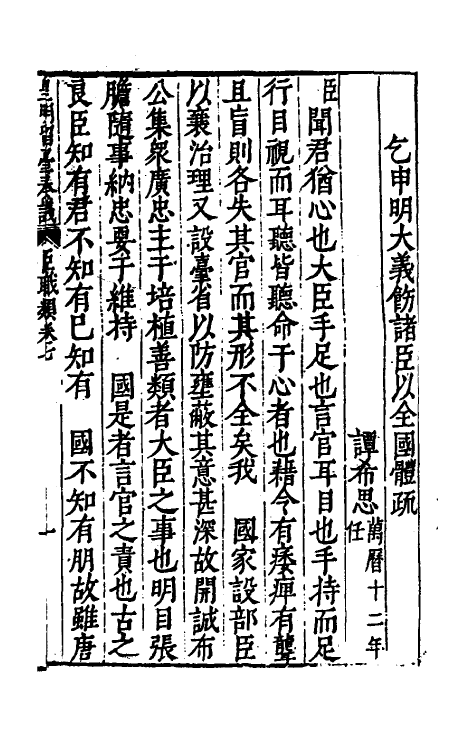 乞申明大義飭諸臣以全國體疏
譚希思萬曆十二年任
臣聞君猶心也大臣手足也言官耳目也手持而足
行目視而耳聽皆聽命于心者也藉今有痿痺有聾
且盲則各失其官而其形不全矣我　國家設部臣
以襄治理又設臺省以防壅蔽其意甚深故開誠布
公集衆廣忠主于培植善類者大臣之事也明目張
膽隨事納忠要于維持　國是者言官之責也古之
良臣知有君不知有已知有　國不知有朋故雖唐
皇明留臺奏議　臣職類卷七　一